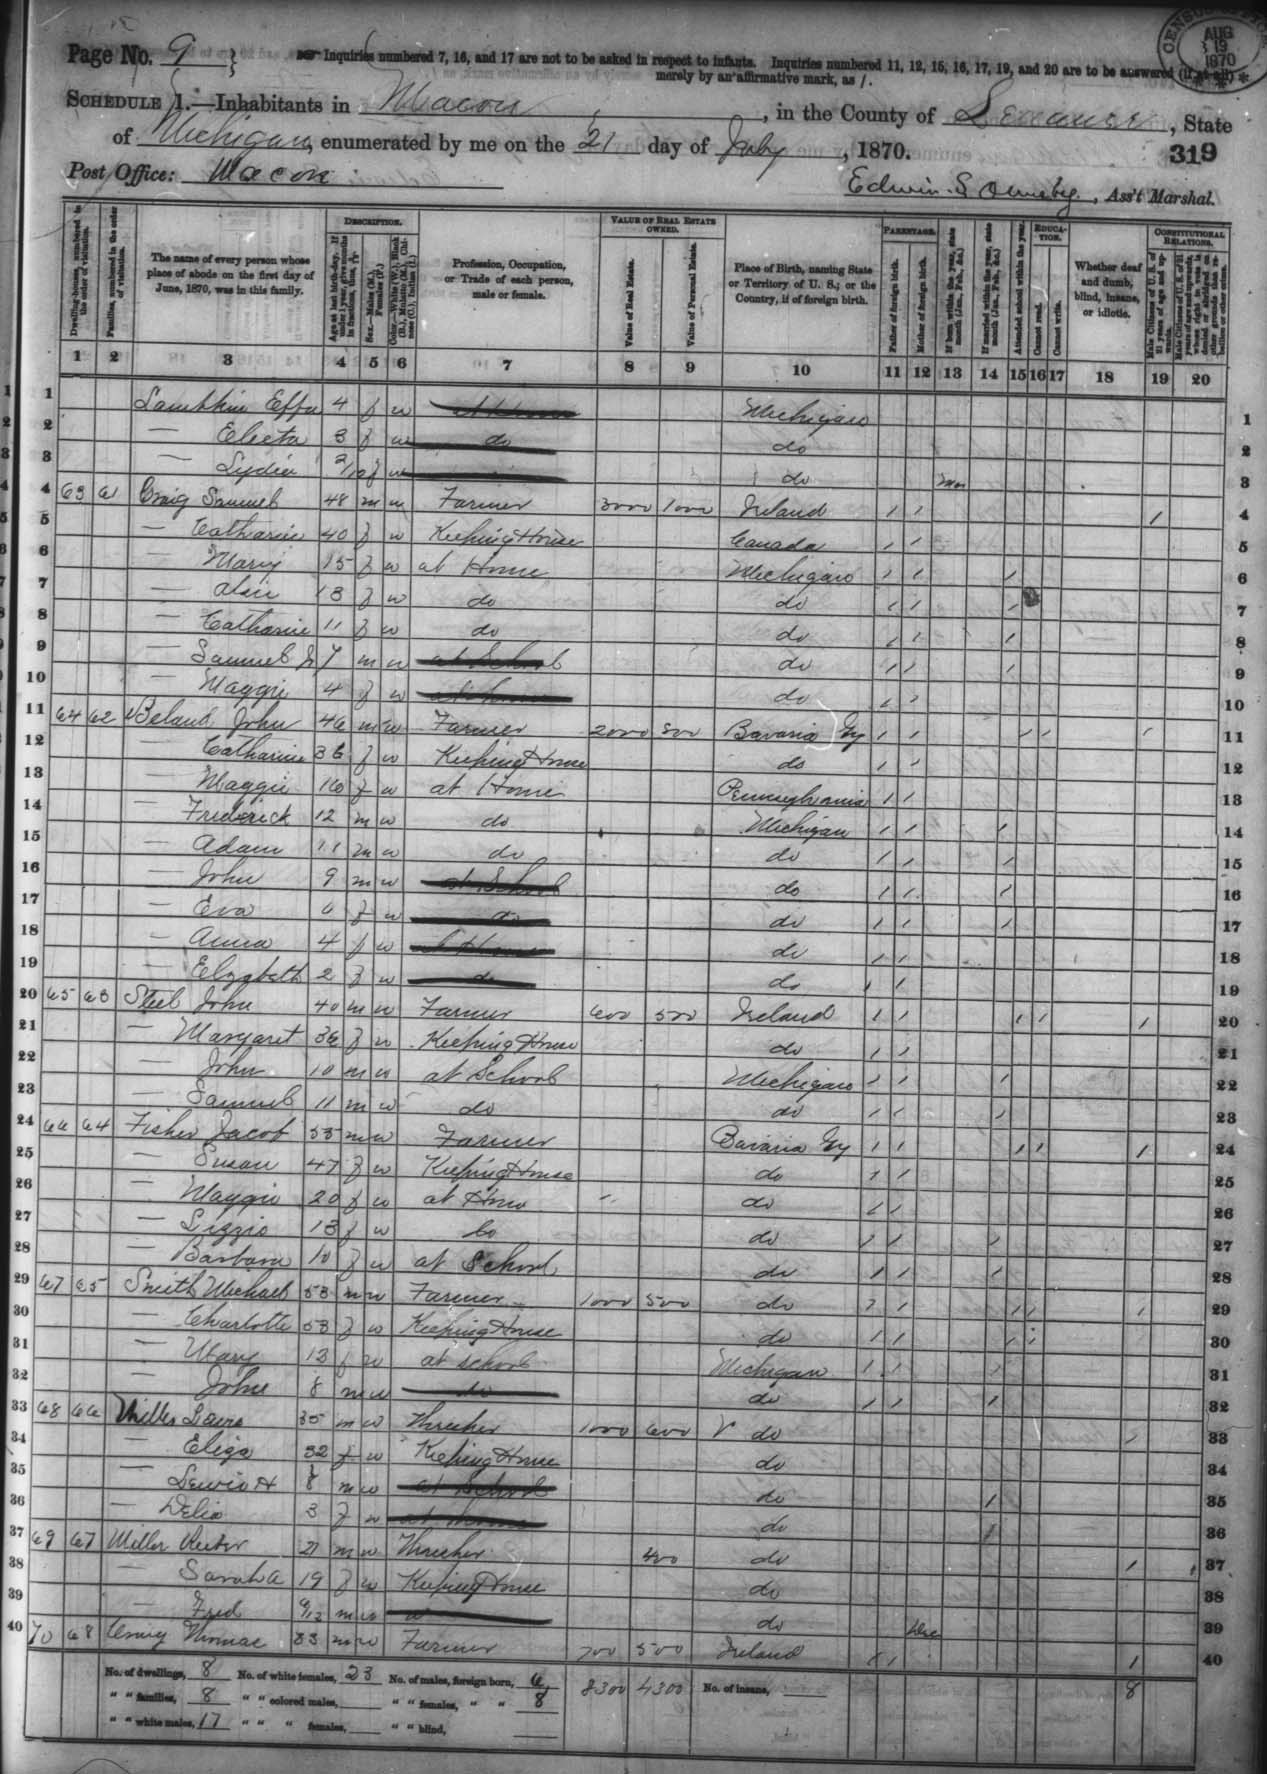 Page No. 9
Inquiries numbered 7, 16, and 17 are not to be asked in respect to infants. Inquiries numbered 11, 12, 15, 16, 17, 19, and 20 are to be answered (if at all)
merely by an affirmative mark, as /.
AUG 19 1870
SCHEDULE 1.—Inhabitants in Macon, in the County of Lenawee, State
of Michigan, enumerated by me on the 21 day of July, 1870.
319
Post Office: Macon
Edwin S. Ormsby, Ass't Marshal.
DESCRIPTION. VALUE OF REAL ESTATE OWNED. PARENTAGE. EDUCATION. CONSTITUTIONAL RELATIONS.
Dwelling-houses, numbered in the order of visitation.
Families, numbered in the order of visitation.
The name of every person whose place of abode on the first day of June, 1870, was in this family.
Profession, Occupation, or Trade of each person, male or female.
Value of Real Estate.
Value of Personal Estate.
Place of Birth, naming State or Territory of U. S.; or the Country, if of foreign birth.
Father of foreign birth.
Mother of foreign birth.
If born within the year, state month (Jan., Feb., &c.)
If married within the year, state month (Jan., Feb., &c.)
Attended school within the year.
Cannot read.
Cannot write.
Whether deaf and dumb, blind, insane, or idiotic.
1 2 3 4 5 6 7 8 9 10 11 12 13 14 15 16 17 18 19 20
1 Lambkin Effa 4 f w at Home Michigan 1
2 — Electa 3 f w do do 2
3 — Lydia 2/12 f w do Mar 3
4 63 61 Craig Samuel 48 m w Farmer 3000 1000 Ireland / / / 4
5 — Catharine 40 f w Keeping House Canada / / 5
6 — Mary 15 f w at Home Michigan / / / 6
7 — 13 f w do do / / / 7
8 — Catharine 11 f w do do / / / 8
9 — Samuel Jr 7 m w at School do / / / 9
10 — Maggie 4 f w at home do / / 10
11 64 62 Beland John 46 m w Farmer 2000 800 Bavaria Gy / / / / / 11
12 Catharine 36 f w Keeping House do / / 12
13 — Maggie 16 f w at Home Pennsylvania / / 13
14 — Frederick 12 m w do Michigan / / / 14
15 — Adam 11 m w do do / / / 15
16 — John 9 m w at School do / / / 16
17 — Eva 6 f w do do / / / 17
18 — Anna 4 f w at Home do / / 18
19 — Elizabeth 2 f w do do / / 19
20 65 63 Steel John 40 m w Farmer 600 500 Ireland / / / / / 20
21 — Margaret 36 f w Keeping House do / / 21
22 — John 10 m w at School Michigan / / / 22
23 — Samuel 11 m w do do / / / 23
24 66 64 Fisher Jacob 55 m w Farmer Bavaria Gy / / / / / 24
25 — Susan 47 f w Keeping House do / / 25
26 — Maggie 20 f w at Home do / / 26
27 — Lizzie 13 f w do do / / / 27
28 — Barbara 10 f w at School do / / / 28
29 67 65 Smith Michael 53 m w Farmer 1000 500 do / / / / / 29
30 — Charlotte 53 f w Keeping House do / / / / 30
31 — Mary 13 f w at school Michigan / / / 31
32 — John 8 m w do do / / / 32
33 68 66 Miller 35 m w Thresher 1000 600 do / 33
34 — Eliza 32 f w Keeping House do 34
35 — Lewis H 8 m w at School do / 35
36 — Delia 3 f w at home do / 36
37 69 67 Miller 21 m w Thresher 400 do / 37
38 — Sarah A 19 f w Keeping House do 38
39 — Fred 6/12 m w do Dec 39
40 70 68 Thomas 33 m w Farmer 700 500 Ireland / / / 40
No. of dwellings, 8 No. of white females, 23 No. of males, foreign born, 6 8300 4300 No. of insane, 8
" " families, 8 " " colored males, " " females, " " 8
" " white males, 17 " " " females, " " blind,